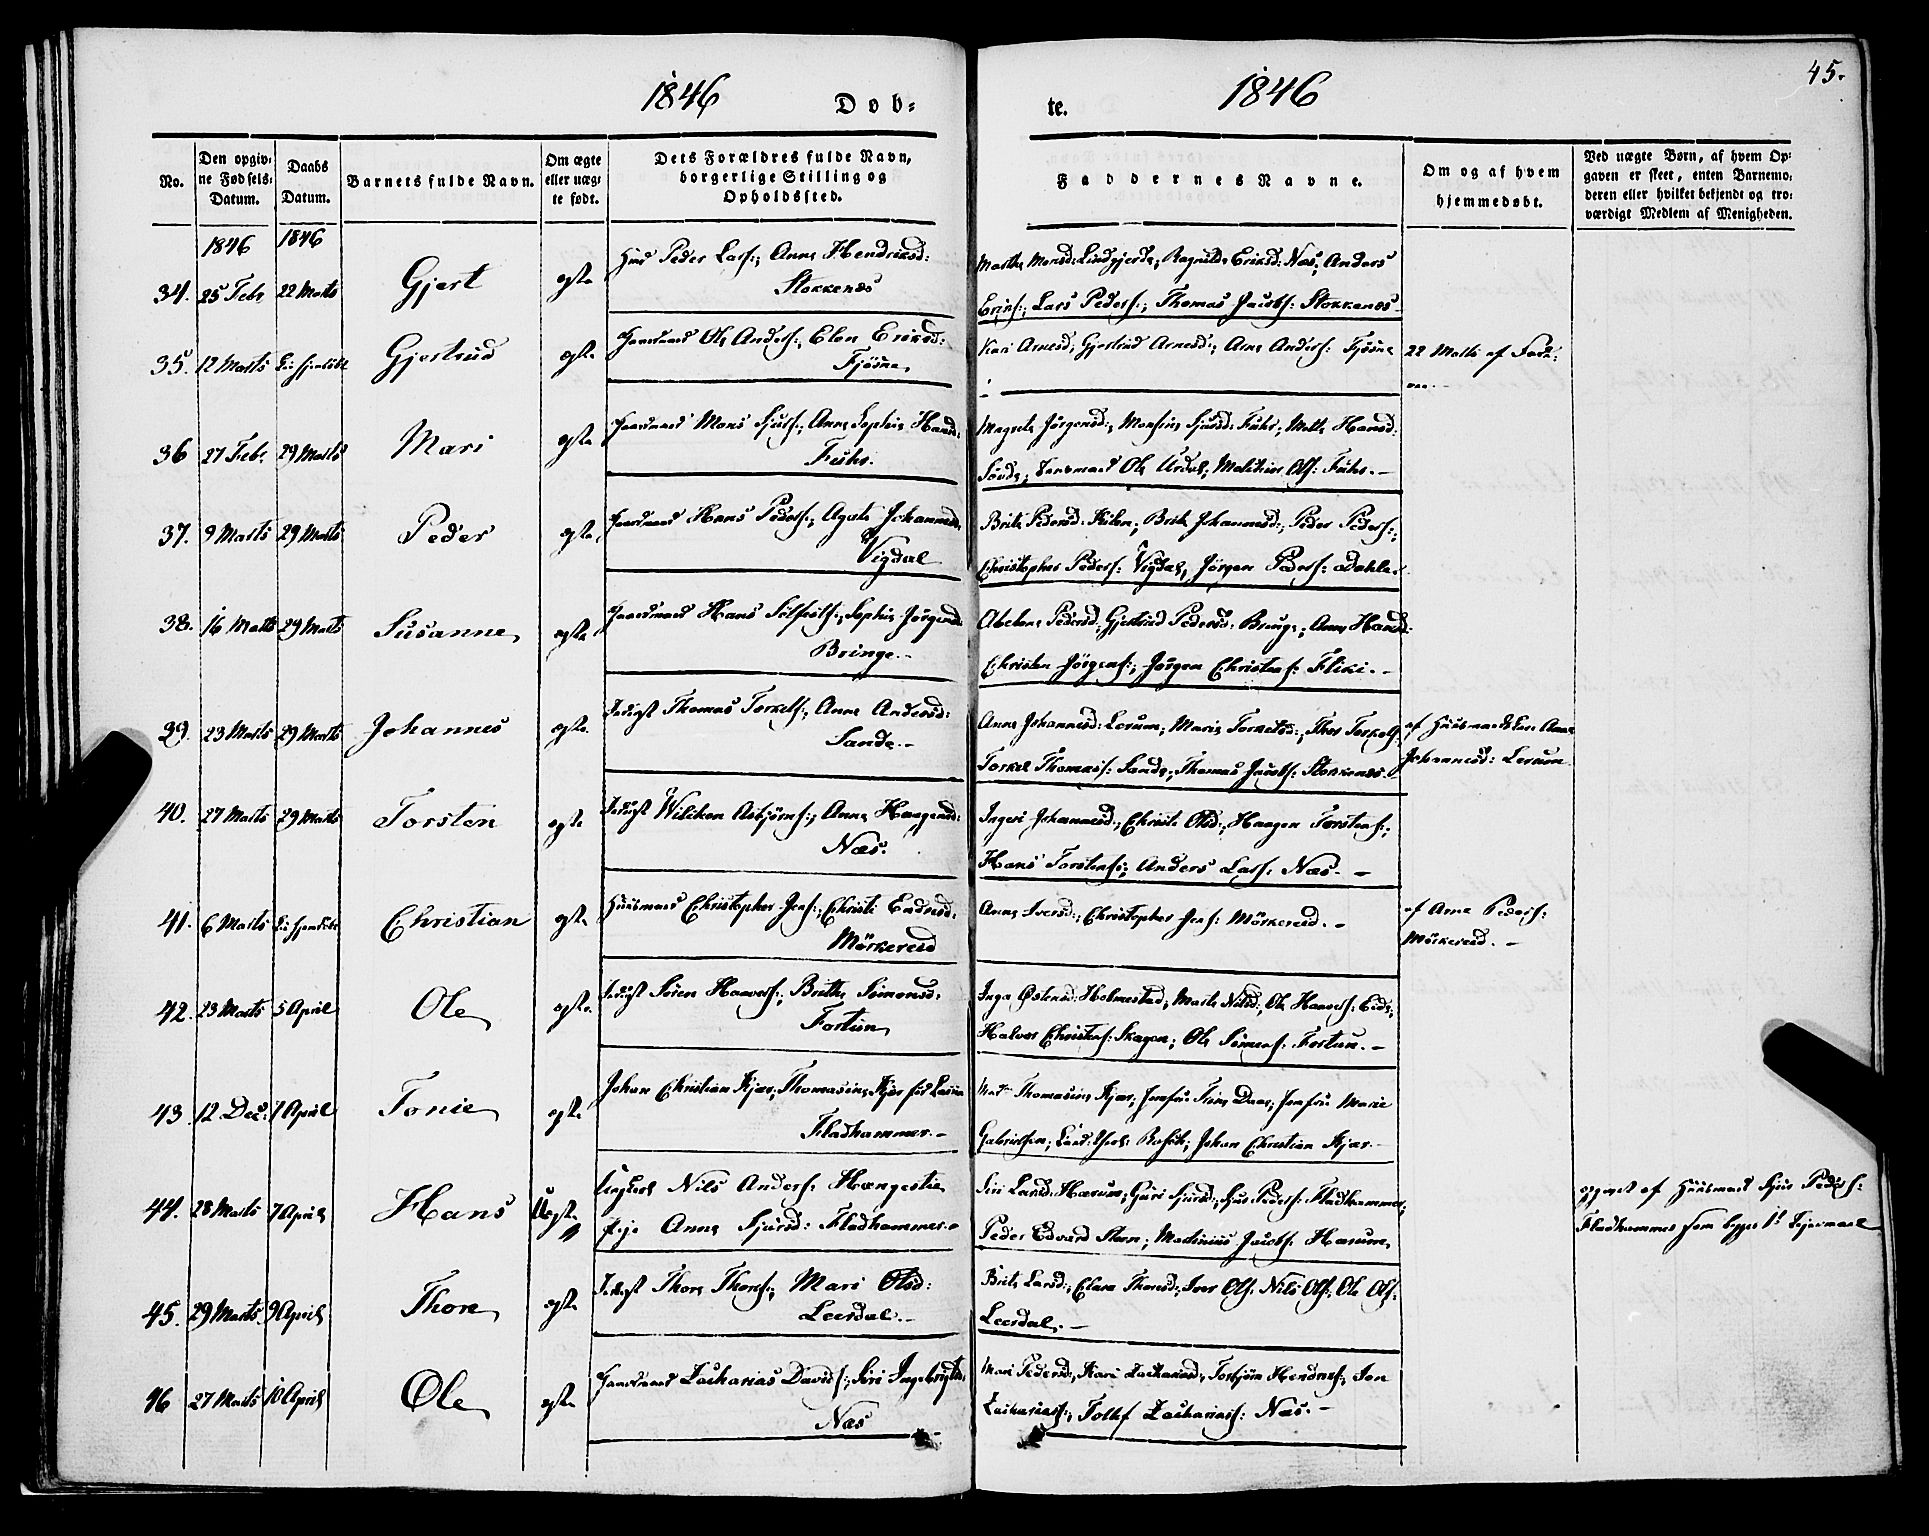 1846 Døb-
te. 1846
45.
No.
Den opgiv-
ne Fødsels-
Datum.
Daabs
Datum.
Barnets fulde Navn.
Om ægte
eller uæg-
te født.
Dets Forældres fulde Navn,
borgerlige Stilling og
Opholdssted.
Faddernes Navne.
Om og af hvem
hjemmedøbt.
Ved uægte Børn, af hvem Op-
gaven er skeet, enten Barnemo-
deren eller hvilket bekjendt og tro-
værdigt Medlem af Menigheden.
1846 1846
34. 25 Febr 22 Marts Gjert egte
Peder Lars:, Anna Hendriksd:
Stokkenæs
Marthe Monsd: Lindgjerde, Ragnilde Eriksd: Næs, Anders
Erins:, Lars Peders:, Thomas Jacobs: Stokkenæs
35. 12 Marts Gjertrud egte
Gaardmand Ole Anders:, Elen Eriksd:
Fjøsne
Kari Arnesd, Gjertrud Arnesd:, Arne Anders: Fjøsne
22 Marts af
36 27 Febr. 29 Marts Mari egte
Gaardmand Mons Sjurs:, Anne Sophie Hansd:
Fuhr.
Magrete Jørgensd:, Monsine Sjursd: Fuhr, Mette Hansd:
Ole Urdal, Ols: Fuhr.-
37. 9 Marts 29 Marts Peder egte
Gaardmand Hans Peders:, Agate Johannesd:
Vigdal
Brite Pedersd: Brite Johannesd:, Peder Peders:,
Christopher Peders: Vigdal, Jørgen Peders: Dahle
38. 16 Marts 29 Marts Susanne egte
Gaardmand Hans Sophie Jørgensd:
Bringe.-
Abelone Pedersd: Gjertrud Pedersd: Bringe, Anne Hansd:
Christen Jørgens:, Jørgen Christens: Fliki.-
39. 23 Marts 29 Marts Johannes egte.
Inderst Thomas Torkels:, Anna Andersd:
Sande.-
Anne Johannesd: Lerum, Marie Torkelsd:, Thor Torkels:
Torkel Thomass: Sande, Thomas Jacobs: Stokkenæs.
af Huusmands Kone Anne
Johannesd: Lerum
40. 27 Marts 29 Marts Torsten egte
Inderst Wiliken Asbjørns:, Anna Haagensd:
Næs.
Ingeri Johannesd:, Christi Olsd:, Haagen Torstens:,
Hans Torstens:, Anders Lars: Næs.-
41. 6 Marts Christian egte
Huusmand Christopher Jens:, Christi Endresd:
Mørkereid
Anne Iversd:, Christopher Jens: Mørkereid.-
af Arne Peders:
Mørkereid.-
42. 23 Marts 5 April Ole egte.
Inderst Søren Haavers:, Brithe Simonsd:
Fortun
Inga Østensd: Holmestad, Marte Nilsd:, Ole Haavers: Eide,
Halvor Christens: Skagen, Ole Simens: Fortun.-
43. 12 Dec: 7 April Tonie egte
Johan Christian Kjær, Thomasine Kjær fød
Fladhammer.-
Mad: Thomasine Kjær, Jomfru Trine Daae, Jomfru Marie
Gabrielsen, Johan Christian Kjær.-
44. 28 Marts 7 April Hans Uegte
Ungkarl Nils Anders: Hængestie
Pige Anne Sjursd: Fladhammer.-
Siri Larsd: Hærum, Guri Sjursd:, Sjur Peders: Fladhammer,
Peder Edvard Steen, Martinius Jacobs: Hærum,
opgivet af Huusmand Sjur Peders:
Fladhammer som begges 1ste Leiermaal
45. 29 Marts 9 April Thore egte
Inderst Thore Thores:, Mari Olsd:
Leerdal.-
Brite Larsd:, Elena Thoresd:, Iver Ols: Nils Ols:, Ole Ols:
Leerdal.-
46 27 Marts 10 April Ole egte
Gaardmand Zacharias Davids:, Siri Ingebrigtsd:
Næs
Mari Pedersd:, Kari Zachariasd:, Torbjørn Hendriks:, Jon
Zacharias:, Tollef Zacharias: Næs.-